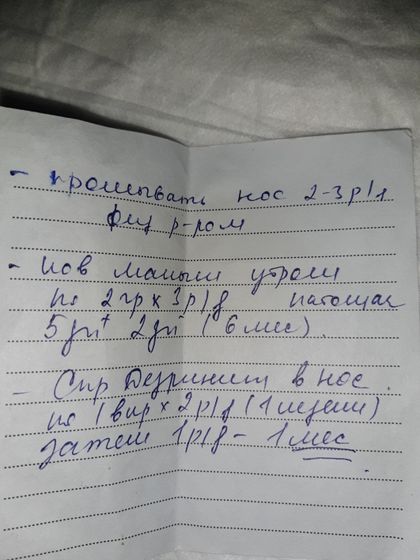 - промывать нос 2-3 р/д
физ р-ром
- утром
по 2 гр х 3 р/д натощак
5 дн + 2 дн (6 мес)
- Спр Дезринит в нос
по 1 впр х 2 р/д (1 месяц)
затем 1 р/д - 1 мес.